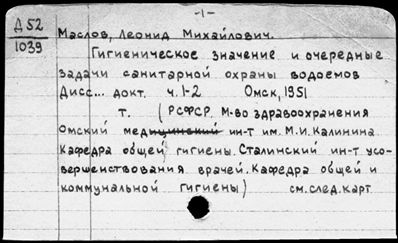 -1-
Д 52
1039
Маслов, Леонид Михайлович.
Гигиеническое значение и очередные
задачи санитарной охраны водоемов
Дисс... докт. ч. 1-2 Омск, 1951
т. (РСФСР. М-во здравоохранения
Омский медицинский ин-т им. М.И. Калинина
Кафедра общей гигиены. Сталинский ин-т усо-
вершенствования врачей. Кафедра общей и
коммунальной гигиены) см. след. карт